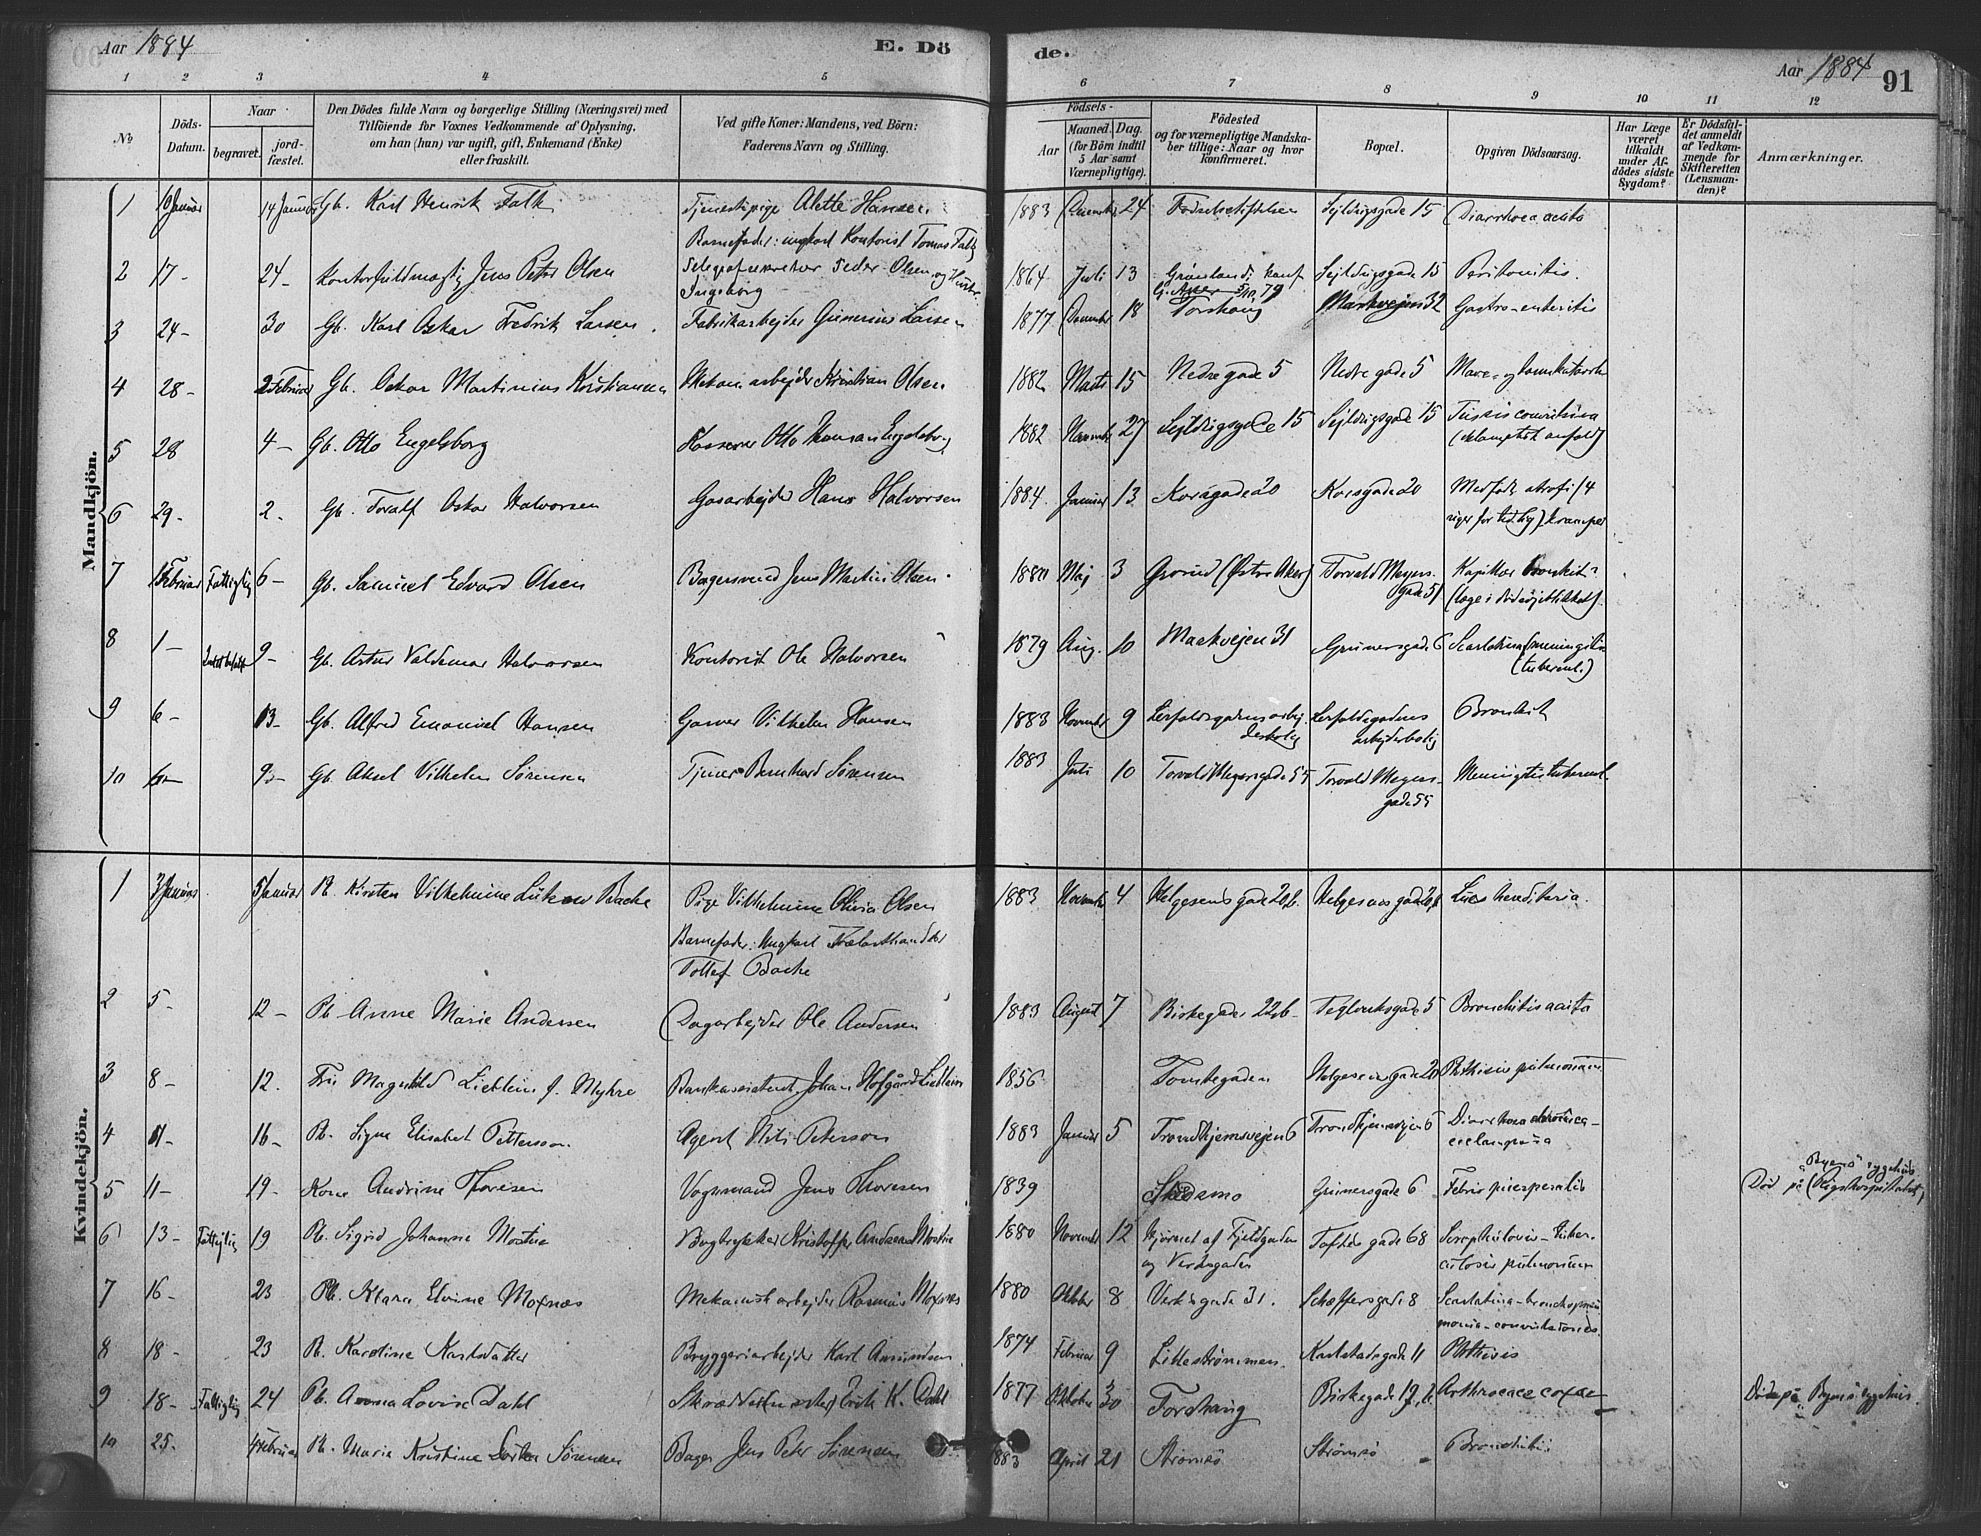 Aar 1884
E. Dö
de.
Aar 1884
91
1 2 3 4 5
6 7 8 9 10 11 12
No
Döds-
Datum.
Naar
begravet.
jord-
fæstet.
Den Dödes fulde Navn og borgerlige Stilling (Næringsvei) med
Tilföiende for Voxnes Vedkommende af Oplysning,
om han (hun) var ugift, gift, Enkemand (Enke)
eller fraskilt.
Ved gifte Koner: Mandens, ved Börn:
Faderens Navn og Stilling.
Födsels-
Aar
Maaned. Dag.
(for Börn indtil
5 Aar samt
Værnepligtige).
Födested
og for værnepligtige Mandska-
ber tillige: Naar og hvor
konfirmeret.
Bopæl.
Opgiven Dödsaarsag.
Har Læge
været
tilkaldt
under Af-
dödes sidste
Sygdom?
Er Dödsfal-
det anmeldt
af Vedkom-
mende for
Skifteretten
(Lensman-
den)?
Anmærkninger.
Mandkjön.
1 10 Januar 14 Januar Gb. Karl Henrik Falk Tjenestepige Alette Hansen 1883 December 24 Fødselsstiftelsen Sejldugsgade 15 Diarrhoea acuta
Barnefader: ungkarl Kontorist Tomas Falk
2 17- 24- Kontorfuldmægtig Jens Peter Olsen Telegrafsekretær Peder Olsen og Hustr. 1864 Juli 13 Grønland; konf. Sejldugsgade 15 Peritonitis.
Ingeborg G. Aker 5/10 79
3 24- 30 Gb. Karl Oskar Fredrik Larsen. Fabrikarbejder Gunerius Larsen 1877 December 18 Torshaug Markvejen 32 Gastro-enteritis
4 28- 2 Februar Gb. Oskar Martinius Kristiansen Mekan. arbejder Kristian Olsen 1882 Marts 15 Nedregade 5 Nedregade 5 Mave- og
5 28 4- Gb. Otto Engelsborg Kasserer Otto Engelsborg 1882 November 27 Sejldugsgade 15 Sejldugsgade 15 Tussis convulsiva
(eklamptisk anfald)
6 29- 2- Gb. Toralf Oskar Halvorsen Gasarbejder Hans Halvorsen 1884 Januar 13 Korsgade 20 Korsgade 20 Medfødt atrofi (4
uger for tidlig), kramper
7 1 Februar Fattiglig 6- Gb. Samuel Edvard Olsen Bagersvend Jens Martin Olsen 1880 Maj 3 Grorud (Østre Aker) Torvald Meyers-
gade 51 Kapillær bronkit
8 1- 9- Gb. Artur Valdemar Halvorsen Kontorist Ole Halvorsen 1879 Aug. 10 Markvejen 31 Grünersgade 6 Scarlatina (meningitis
tubercul.)
9 6- 13- Gb. Alfred Emanuel Hansen Garver Vilhelm Hansen 1883 November 9 Lerfaldsgadens arbej- Lerfaldsgadens Bronkit
derbolig arbejderbolig
10 6- 9- Gb. Aksel Vilhelm Sørensen Tjener Bernhard Sørensen 1883 Juli 10 Torvald Meyersgade 55 Torvald Meyers- Meningitis tubercul.
gade 55
Kvindekjön.
1 3 Januar 5 Januar Pb. Kirsten Vilhelmine Backe Pige Vilhelmine Olivia Olsen 1883 November 4 Helgesensgade 20b. Helgesensgade Lues hereditaria.
Barnefader: Ungkarl Trælasthandler
Tollef Backe
2 5- 12- Pb. Anne Marie Andersen Dagarbejder Ole Andersen 1883 August 7 Birkegaden 22b- Teglverksgade 5 Bronchitis acuta
3 8- 12. Fru Magnhild Lieblein f. Myhre Bankassistent Johan Hofgård Lieblein 1856 Tomtegaden Helgesensgade 20 Phthisis pulmonum
4 11- 16- Pb. Signe Elisabet Petterson Agent Nils Peterson 1883 Januar 5 Trondhjemsvejen 6 Trondhjemsvejen 6 Diarrhoea chronica-
eclampsia
5 11- 19- Kone Andrine Thoresen Vognmand Jens Thoresen 1839 Skedsmo Grünersgade 6 Febris puerperalis Död på "Byens" sygehus
(Rigshospitalet)
6 13- Fattiglig 19 Pb. Sigrid Johanne Mostue Bogtrykker Kristoffer Andersen Mostue 1880 November 12 Hjørnet af Fjeldgaden Toftes gade 68 Scrophulosis-tuber-
og Verksgaden culosis pulmonum
7 16- 23 Pb. Klara Elvine Moxnæs Mekanisk arbejder Rasmus Moxnæs 1880 Oktober 8 Verksgade 31. Schæffersgade 8 Scarlatina-bronchopneu
monia-convulsiones.
8 18- 23 Pb. Karoline Karlsdatter Bryggeriarbejder Karl Amundsen 1874 Februar 9 Lillestrømmen. Karlstadsgade 11 Phthisis
9 18- Fattiglig 24 Pb. Anna Lovise Dahl Skræddermester Erik K. Dahl 1877 Oktober 30 Torshaug Birkegade 19 Arthrocace coxae Döde på Byens sygehus.
10 25. 4 Februar Pb. Marie Kristine Sørensen Bager Jens Peter Sørensen 1883 April 21 Strømsø Strømsø Bronchitis